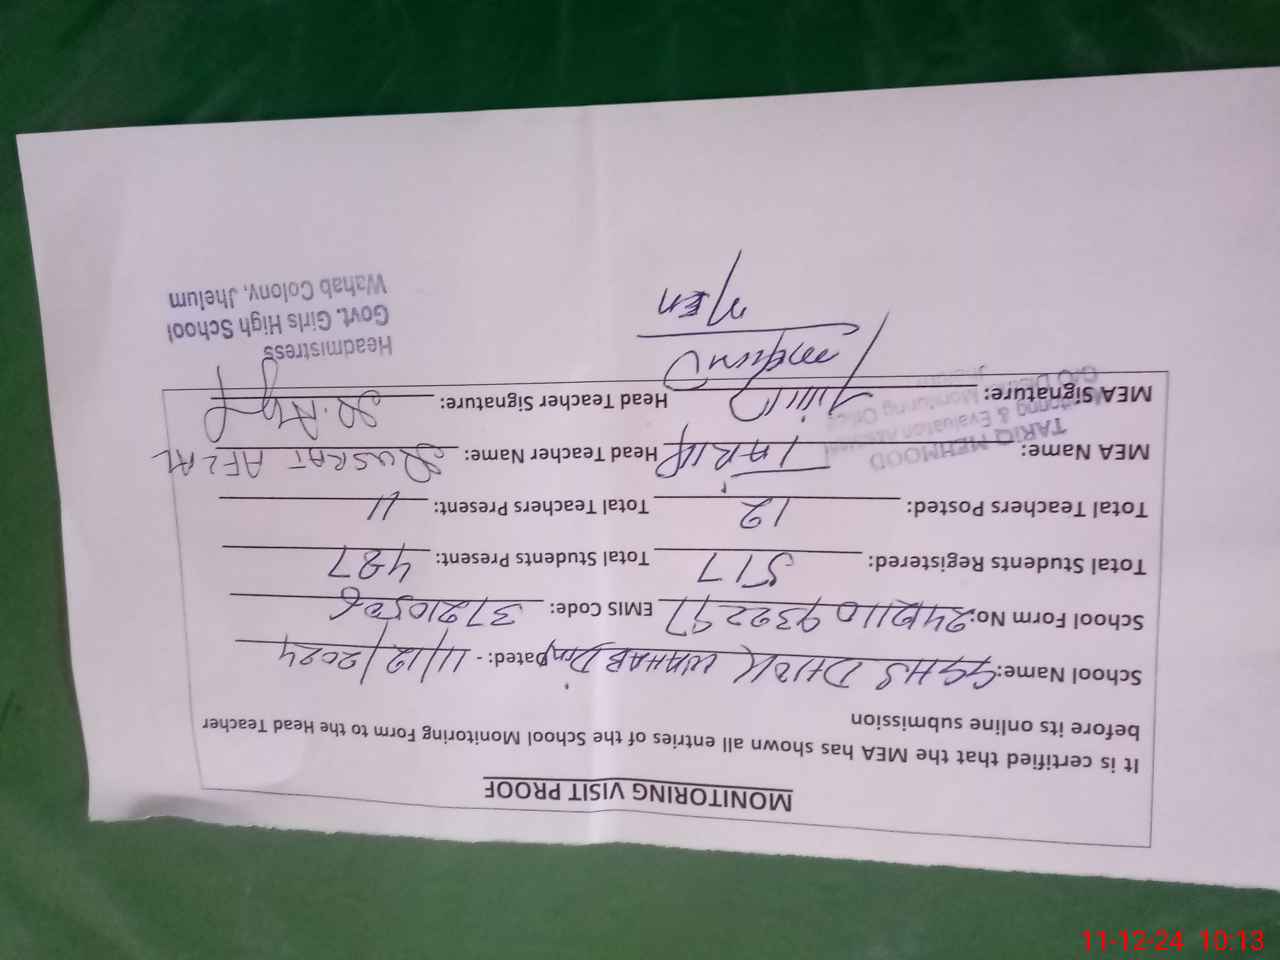 MONITORING VISIT PROOF
It is certified that the MEA has shown all entries of the School Monitoring Form to the Head Teacher
before its online submission
School Name: GGHS DHOK WAHAB Din Dated: - 11/12/2024
School Form No: EMIS Code: 37210506
Total Students Registered: 517 Total Students Present: 487
Total Teachers Posted: 12 Total Teachers Present: 11
MEA Name: TARIQ Head Teacher Name: NUSRAT AFZAL
MEA Signature: Head Teacher Signature:
TARIQ MEHMOOD
Monitoring & Evaluation
Monitoring Office
Headmistress
Govt. Girls High School
Wahab Colony, Jhelum
MEA
11-12-24 10:13